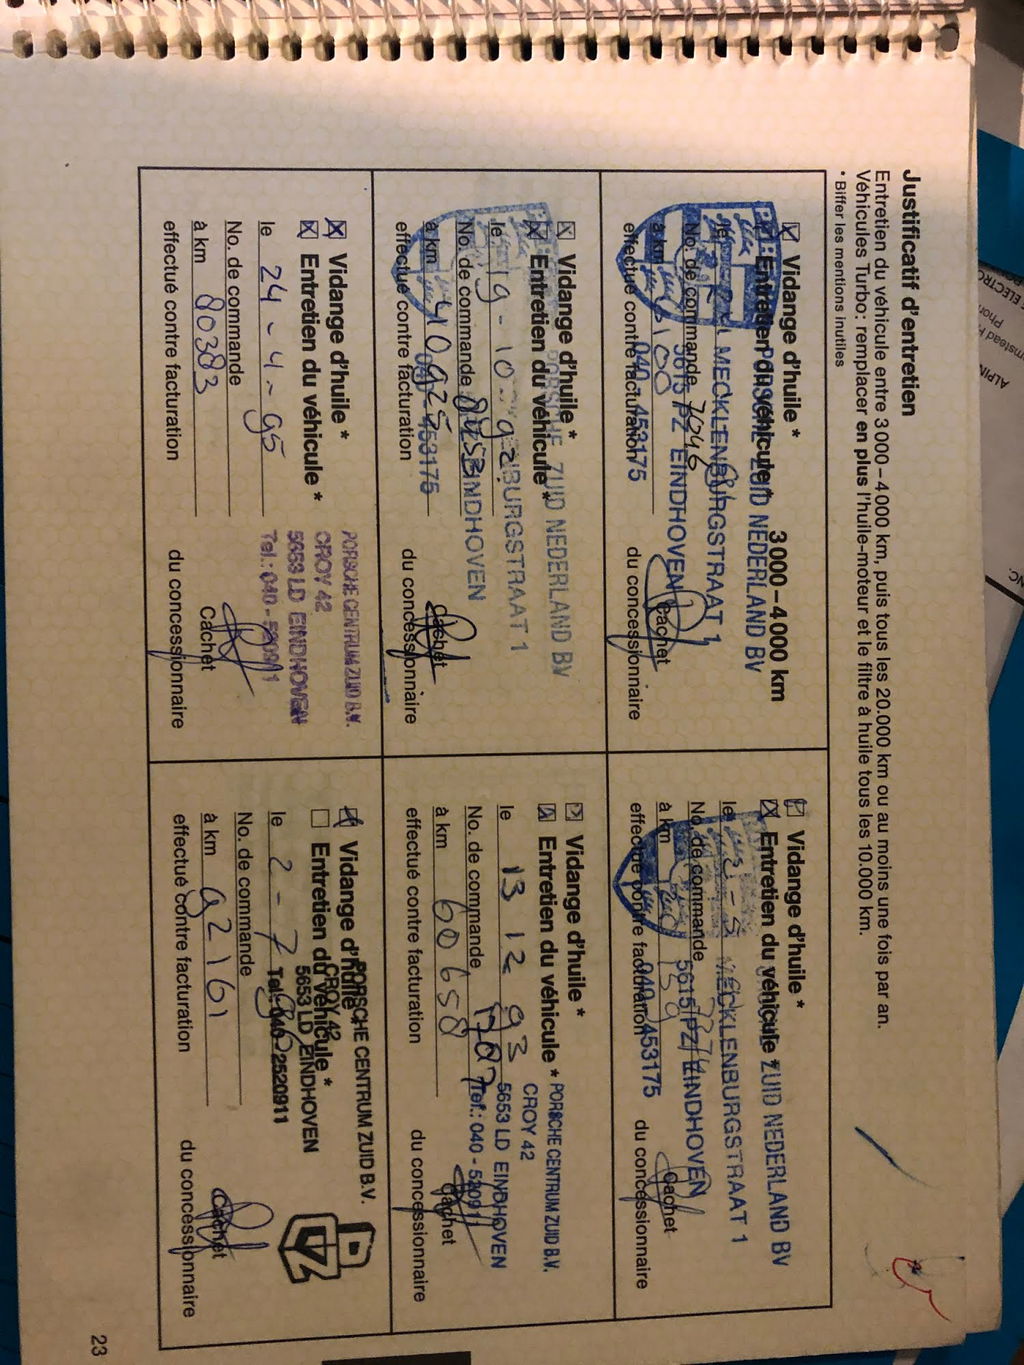 Justificatif d'entretien
Entretien du véhicule entre 3000–4000 km, puis tous les 20.000 km ou au moins une fois par an.
Véhicules Turbo: remplacer en plus l'huile-moteur et le filtre à huile tous les 10.000 km.
* Biffer les mentions inutiles
Vidange d'huile *
3000–4000 km
Entretien du véhicule *
ZUID NEDERLAND BV
le
MECKLENBURGSTRAAT 1
No. de commande
5615 PZ EINDHOVEN
à km
040-453175
effectué contre facturation
Cachet
du concessionnaire
Vidange d'huile *
Entretien du véhicule *
ZUID NEDERLAND BV
le
MECKLENBURGSTRAAT 1
No. de commande
5615 PZ EINDHOVEN
à km
040-453175
effectué contre facturation
Cachet
du concessionnaire
Vidange d'huile *
Entretien du véhicule *
PORSCHE ZUID NEDERLAND BV
le 19-10-92
No. de commande
EINDHOVEN
à km 40925
effectué contre facturation
Cachet
du concessionnaire
Vidange d'huile *
Entretien du véhicule *
PORSCHE CENTRUM ZUID B.V.
CROY 42
le 13 12 93
5653 LD EINDHOVEN
No. de commande
Tel.: 040 - 520911
à km 60658
effectué contre facturation
Cachet
du concessionnaire
Vidange d'huile *
Entretien du véhicule *
PORSCHE CENTRUM ZUID B.V.
CROY 42
le 24-4-95
5653 LD EINDHOVEN
No. de commande
Tel.: 040 - 520911
à km 80383
effectué contre facturation
Cachet
du concessionnaire
Vidange d'huile *
Entretien du véhicule *
PORSCHE CENTRUM ZUID B.V.
CROY 42
5653 LD EINDHOVEN
le 2-7
Tel.: 040-2520911
No. de commande
à km 92161
effectué contre facturation
Cachet
du concessionnaire
23